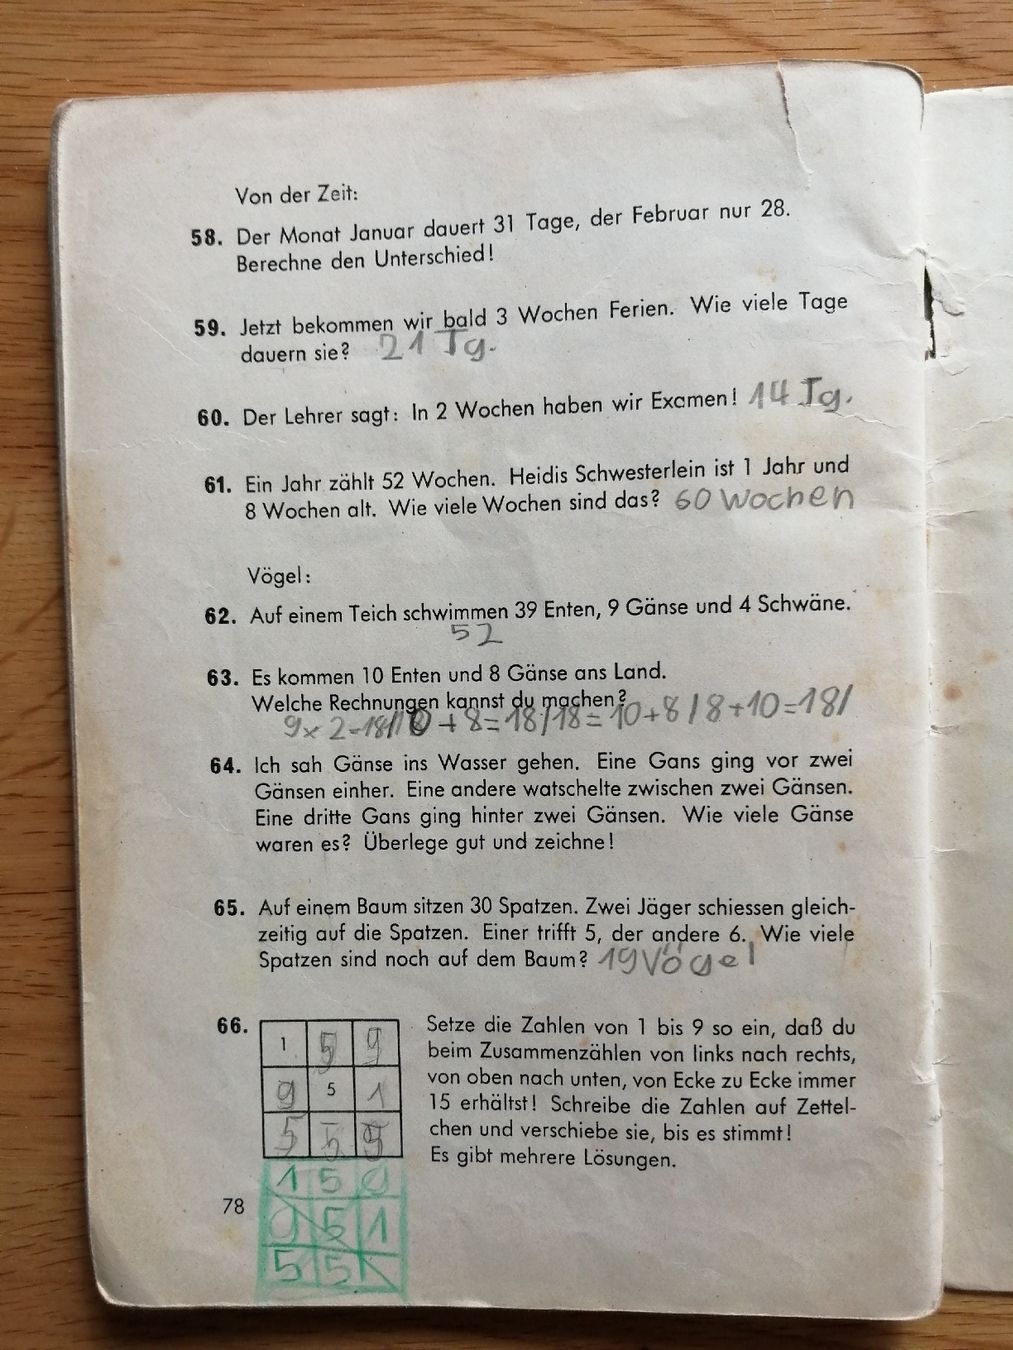 Von der Zeit:
58. Der Monat Januar dauert 31 Tage, der Februar nur 28.
Berechne den Unterschied!
59. Jetzt bekommen wir bald 3 Wochen Ferien. Wie viele Tage
dauern sie? 21 Tg.
60. Der Lehrer sagt: In 2 Wochen haben wir Examen! 14 Tg.
61. Ein Jahr zählt 52 Wochen. Heidis Schwesterlein ist 1 Jahr und
8 Wochen alt. Wie viele Wochen sind das? 60 Wochen
Vögel:
62. Auf einem Teich schwimmen 39 Enten, 9 Gänse und 4 Schwäne.
52
63. Es kommen 10 Enten und 8 Gänse ans Land.
Welche Rechnungen kannst du machen?
9x2=18/10+8=18/18=10+8/8+10=18/
64. Ich sah Gänse ins Wasser gehen. Eine Gans ging vor zwei
Gänsen einher. Eine andere watschelte zwischen zwei Gänsen.
Eine dritte Gans ging hinter zwei Gänsen. Wie viele Gänse
waren es? Überlege gut und zeichne!
65. Auf einem Baum sitzen 30 Spatzen. Zwei Jäger schiessen gleich-
zeitig auf die Spatzen. Einer trifft 5, der andere 6. Wie viele
Spatzen sind noch auf dem Baum? 19 Vögel
66.
1 5 9
9 5 1
5 5
Setze die Zahlen von 1 bis 9 so ein, daß du
beim Zusammenzählen von links nach rechts,
von oben nach unten, von Ecke zu Ecke immer
15 erhältst! Schreibe die Zahlen auf Zettel-
chen und verschiebe sie, bis es stimmt!
Es gibt mehrere Lösungen.
1 5 9
9 5 1
5 5
78